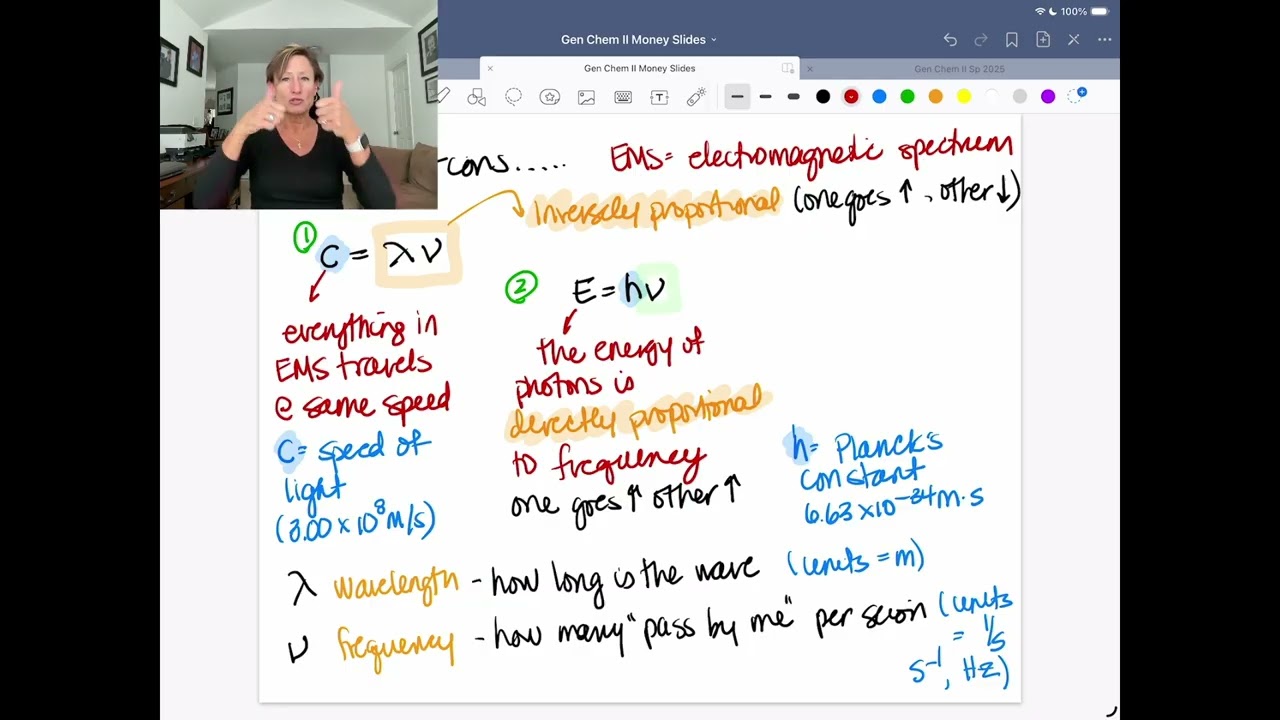 100%
Gen Chem II Money Slides
Gen Chem II Money Slides
Gen Chem II Sp 2025
T
cons.....
EMS= electromagnetic spectrum
inversely proportional (one goes ↑, other ↓)
① C = λν
② E = hν
everything in
EMS travels
@ same speed
C= speed of
light
(3.00 x 10⁸ m/s)
the energy of
photons is
directly proportional
to frequency
one goes ↑ other ↑
h= Planck's
constant
6.63 x10⁻³⁴ m·s
λ wavelength - how long is the wave (units = m)
ν frequency - how many "pass by me" per (units
= 1/s
s⁻¹, Hz)